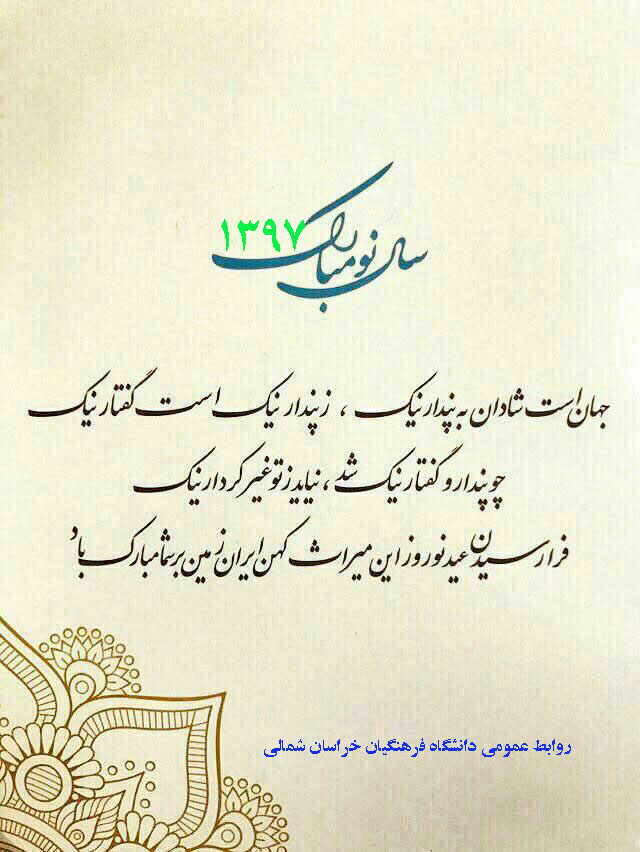 سال نو مبارک ۱۳۹۷
جهان است شادان به پندار نیک ، ز پندار نیک است گفتار نیک
چو پندار و گفتار نیک شد ، نیاید ز تو غیر کردار نیک
فرا رسیدن عید نوروز این میراث کهن ایران زمین بر شما مبارک باد
روابط عمومی دانشگاه فرهنگیان خراسان شمالی